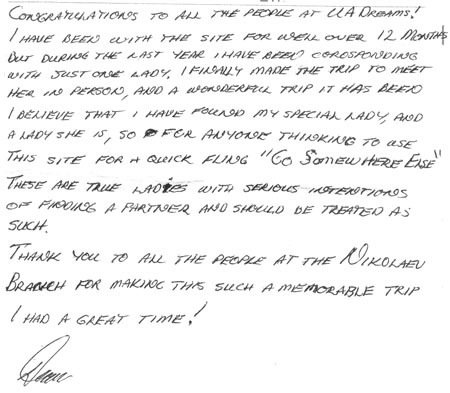 CONGRATULATIONS TO ALL THE PEOPLE AT UADREAMS!
I HAVE BEEN WITH THE SITE FOR WELL OVER 12 MONTHS
BUT DURING THE LAST YEAR I HAVE BEEN CORDSPONDING
WITH JUST ONE LADY. I FINALLY MADE THE TRIP TO MEET
HER IN PERSON, AND A WONDERFUL TRIP IT HAS BEEN
I BELIEVE THAT I HAVE FOUND MY SPECIAL LADY, AND
A LADY SHE IS, SO FOR ANYONE THINKING TO USE
THIS SITE FOR A QUICK FLING "GO SOMEWHERE ELSE"
THESE ARE TRUE LADIES WITH SERIOUS INTENTIONS
OF FINDING A PARTNER AND SHOULD BE TREATED AS
SUCH.
THANK YOU TO ALL THE PEOPLE AT THE NIKOLAEV
BRANCH FOR MAKING THIS SUCH A MEMORABLE TRIP
I HAD A GREAT TIME!